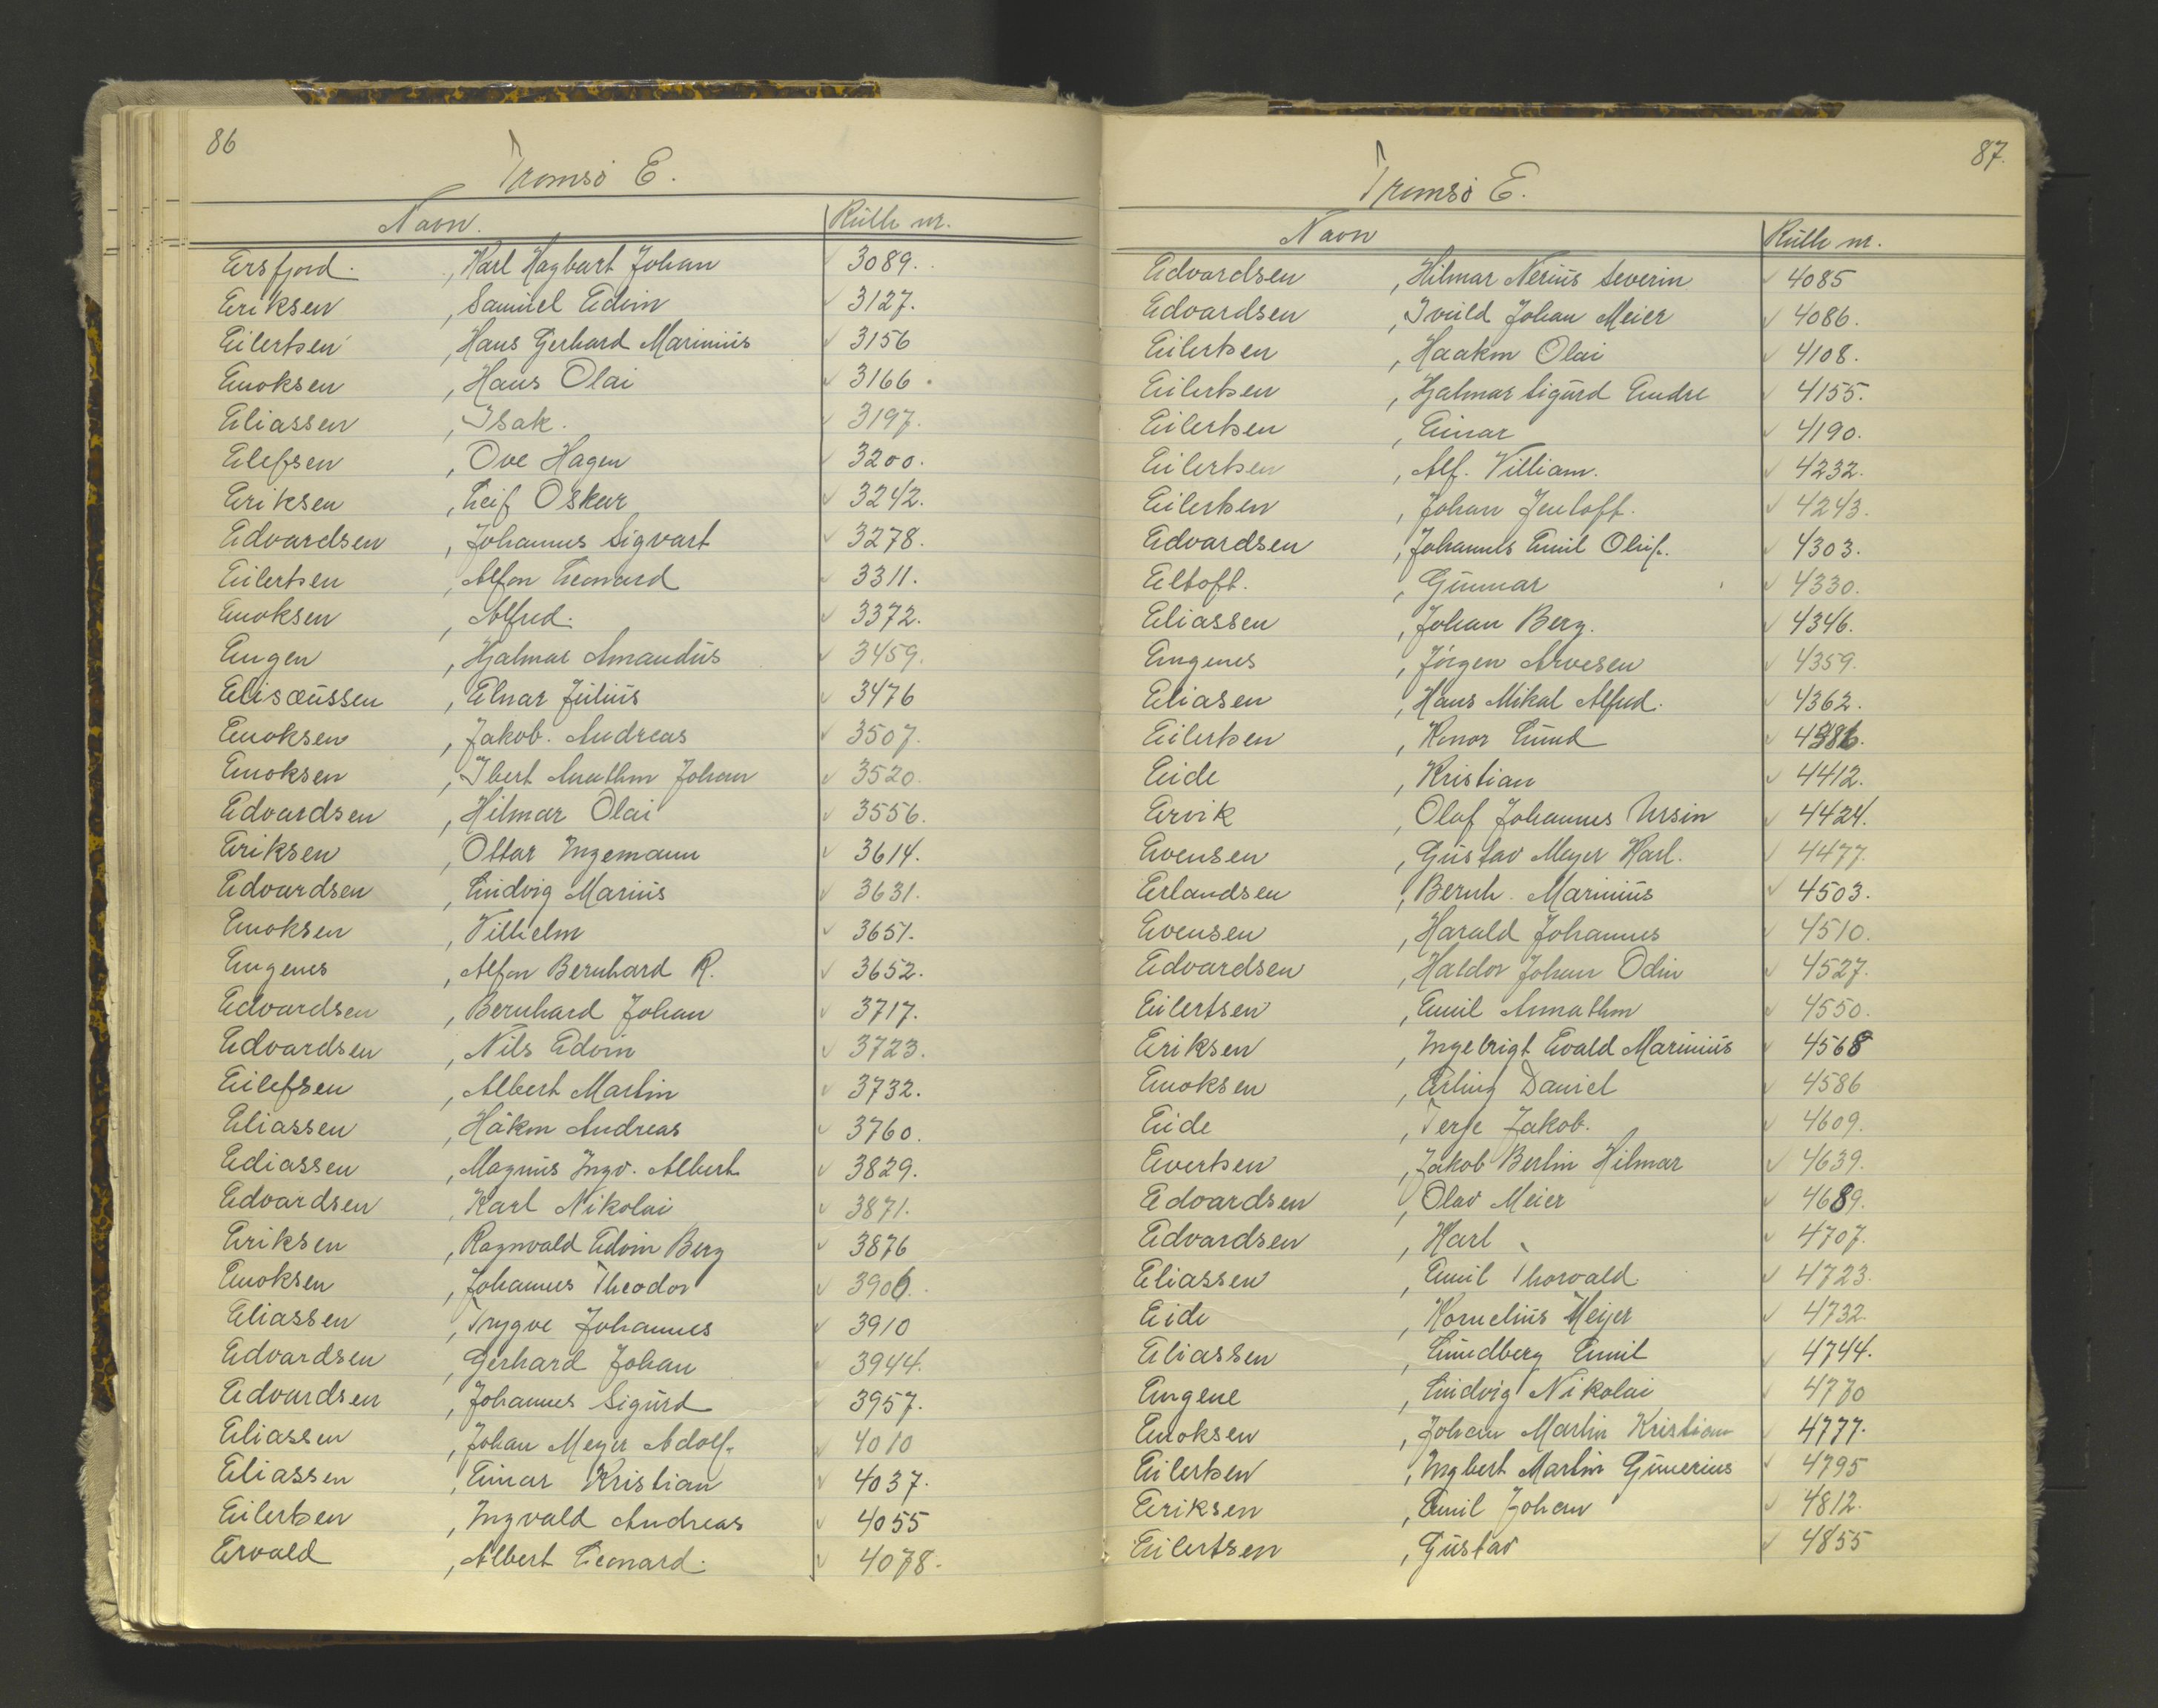 86
Tromsø E.
Navn. Rulle nr.
Ersfjord. , Karl Hagbart Johan 3089.
Eriksen , Samuel Edvin 3127.
Eilertsen , Hans Gerhard Marinius 3156
Enoksen , Hans Olai 3166.
Eliassen , Isak. 3197.
Elefsen , Ove Hagen 3200.
Eriksen , Leif Oskar 3242.
Edvardsen , Johannes Sigvart 3278.
Eilertsen , Alfon Leonard 3311.
Enoksen , Alfred. 3372.
Engen , Hjalmar Amandus 3459.
Elisæussen , Elnar Julius 3476
Enoksen , Jakob. Andreas 3507.
Enoksen , Johan 3520.
Edvardsen , Hilmar Olai 3556.
Eriksen , Ottar Ingemann 3614.
Edvardsen , Ludvig Marius 3631.
Enoksen , Vilhelm 3651.
Engenes , Alfon Bernhard R. 3652.
Edvardsen , Bernhard Johan 3717.
Edvardsen , Nils Edvin 3723.
Eilefsen , Albert Martin 3732.
Eliassen , Håkon Andreas 3760.
Ediassen , Magnus Ingv. Albert 3829.
Edvardsen , Karl Nikolai 3871.
Eriksen , Ragnvald Edvin Berg 3876
Enoksen , Johannes Theodor 3906.
Eliassen , Trygve Johannes 3910
Edvardsen , Gerhard Johan 3944.
Edvardsen , Johannes Sigurd 3957.
Eliassen , Johan Meyer Adolf. 4010
Eliassen , Einar Kristian 4037.
Eilertsen , Ingvald Andreas 4055
Ervald , Albert Leonard. 4078.
87.
Tromsø E.
Navn Rulle nr.
Edvardsen , Hilmar Nerius Severin 4085
Edvardsen , Johan Meier 4086.
Eilertsen , Haakon Olai 4108.
Eilertsen , Hjalmar Sigurd Endre 4155.
Eilertsen , Einar 4190.
Eilertsen , Alf. Villiam. 4232.
Eilertsen , Johan Jentoft. 4243.
Edvardsen , Johannes Emil Oluf. 4303.
Eltoft. , Gunnar 4330.
Eliassen , Johan Berg. 4346.
Engenes , Jörgen Arvesen 4359.
Eliasen , Hans Mikal Alfred. 4362.
Eilertsen , Konor Lund 4386.
Eide , Kristian 4412.
Ervik , Olaf Johannes Ursin 4424.
Evensen , Gustav Meyer Karl. 4477.
Erlandsen , Bernh. Marinius 4503.
Evensen , Harald Johannes 4510.
Edvardsen , Haldor Johan Odin 4527.
Eilertsen , Emil Annathon 4550.
Eriksen , Ingebrigt Evald Marinius 4568
Enoksen , Erling Daniel 4586
Eide , Terje Jakob. 4609.
Evertsen , Jakob Berlin Hilmar 4639.
Edvardsen , Olav Meier 4689.
Edvardsen , Karl 4707.
Eliassen , Emil Thorvald 4723.
Eide , Kornelius Meijer 4732.
Eliassen , Lundberg Emil 4744.
Engene , Ludvig Nikolai 4770
Enoksen , Johan Martin Kristian 4777.
Eilertsen , Ingbert Martin Gunerius 4795
Eriksen , Emil Johan 4812.
Eilertsen , Gustav 4855